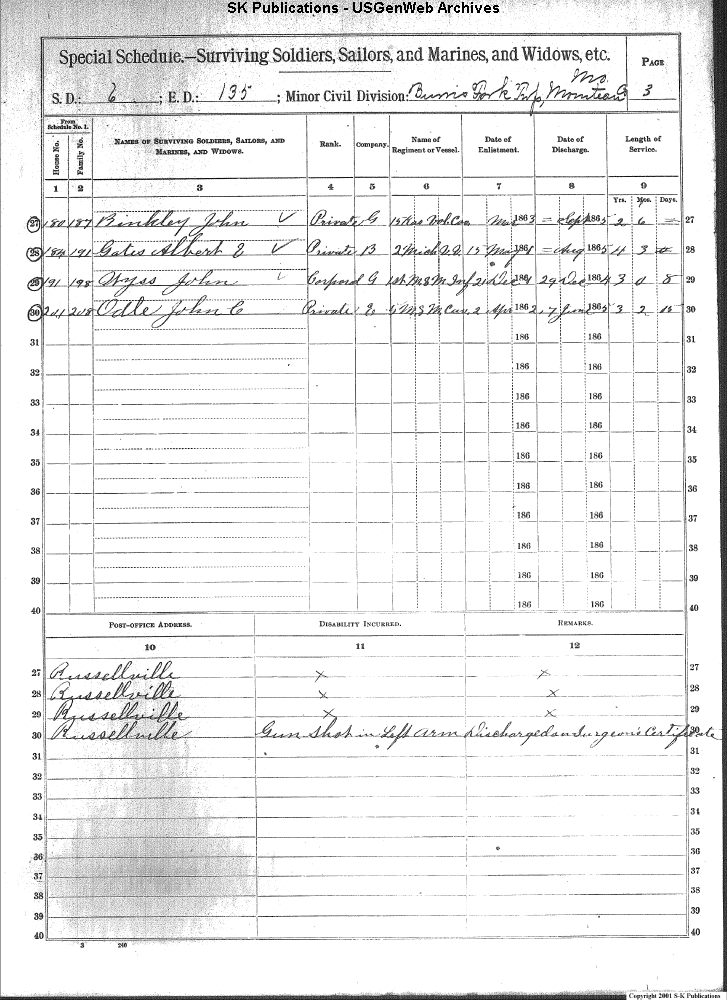 SK Publications - USGenWeb Archives
Special Schedule.—Surviving Soldiers, Sailors, and Marines, and Widows, etc.
PAGE
3
S. D.: 6 ; E. D.: 135 ; Minor Civil Division: Burris Fork Twp, Moniteau Co Mo.
From Schedule No. 1.
House No. Family No. NAMES OF SURVIVING SOLDIERS, SAILORS, AND MARINES, AND WIDOWS. Rank. Company. Name of Regiment or Vessel. Date of Enlistment. Date of Discharge. Length of Service.
1 2 3 4 5 6 7 8 9
Yrs. Mos. Days.
27 180 187 Binkley John Private G 15 Kas Vol. Cav 1863 = Sept 1865 2 6 = 27
28 184 191 Gates Albert E Private B 2 Mich 15 May 1861 = Aug 1865 4 3 28
29 191 198 Wyss John Corporal G 1st M S M Inf 21 Dec 1861 29 Dec 1864 3 0 8 29
30 201 208 Odle John C Private E 5 M S M Cav. 2 Apr 1862 7 June 1865 3 2 15 30
31 186 186 31
32 186 186 32
33 186 186 33
34 186 186 34
35 186 186 35
36 186 186 36
37 186 186 37
38 186 186 38
39 186 186 39
40 186 186 40
POST-OFFICE ADDRESS. DISABILITY INCURRED. REMARKS.
10 11 12
27 Russellville x x 27
28 Russellville x x 28
29 Russellville x x 29
30 Russellville Gun Shot in Left Arm Discharged on Surgeon's Certificate 30
31 31
32 32
33 33
34 34
35 35
36 36
37 37
38 38
39 39
40 40
3 240
Copyright 2001 S-K Publications